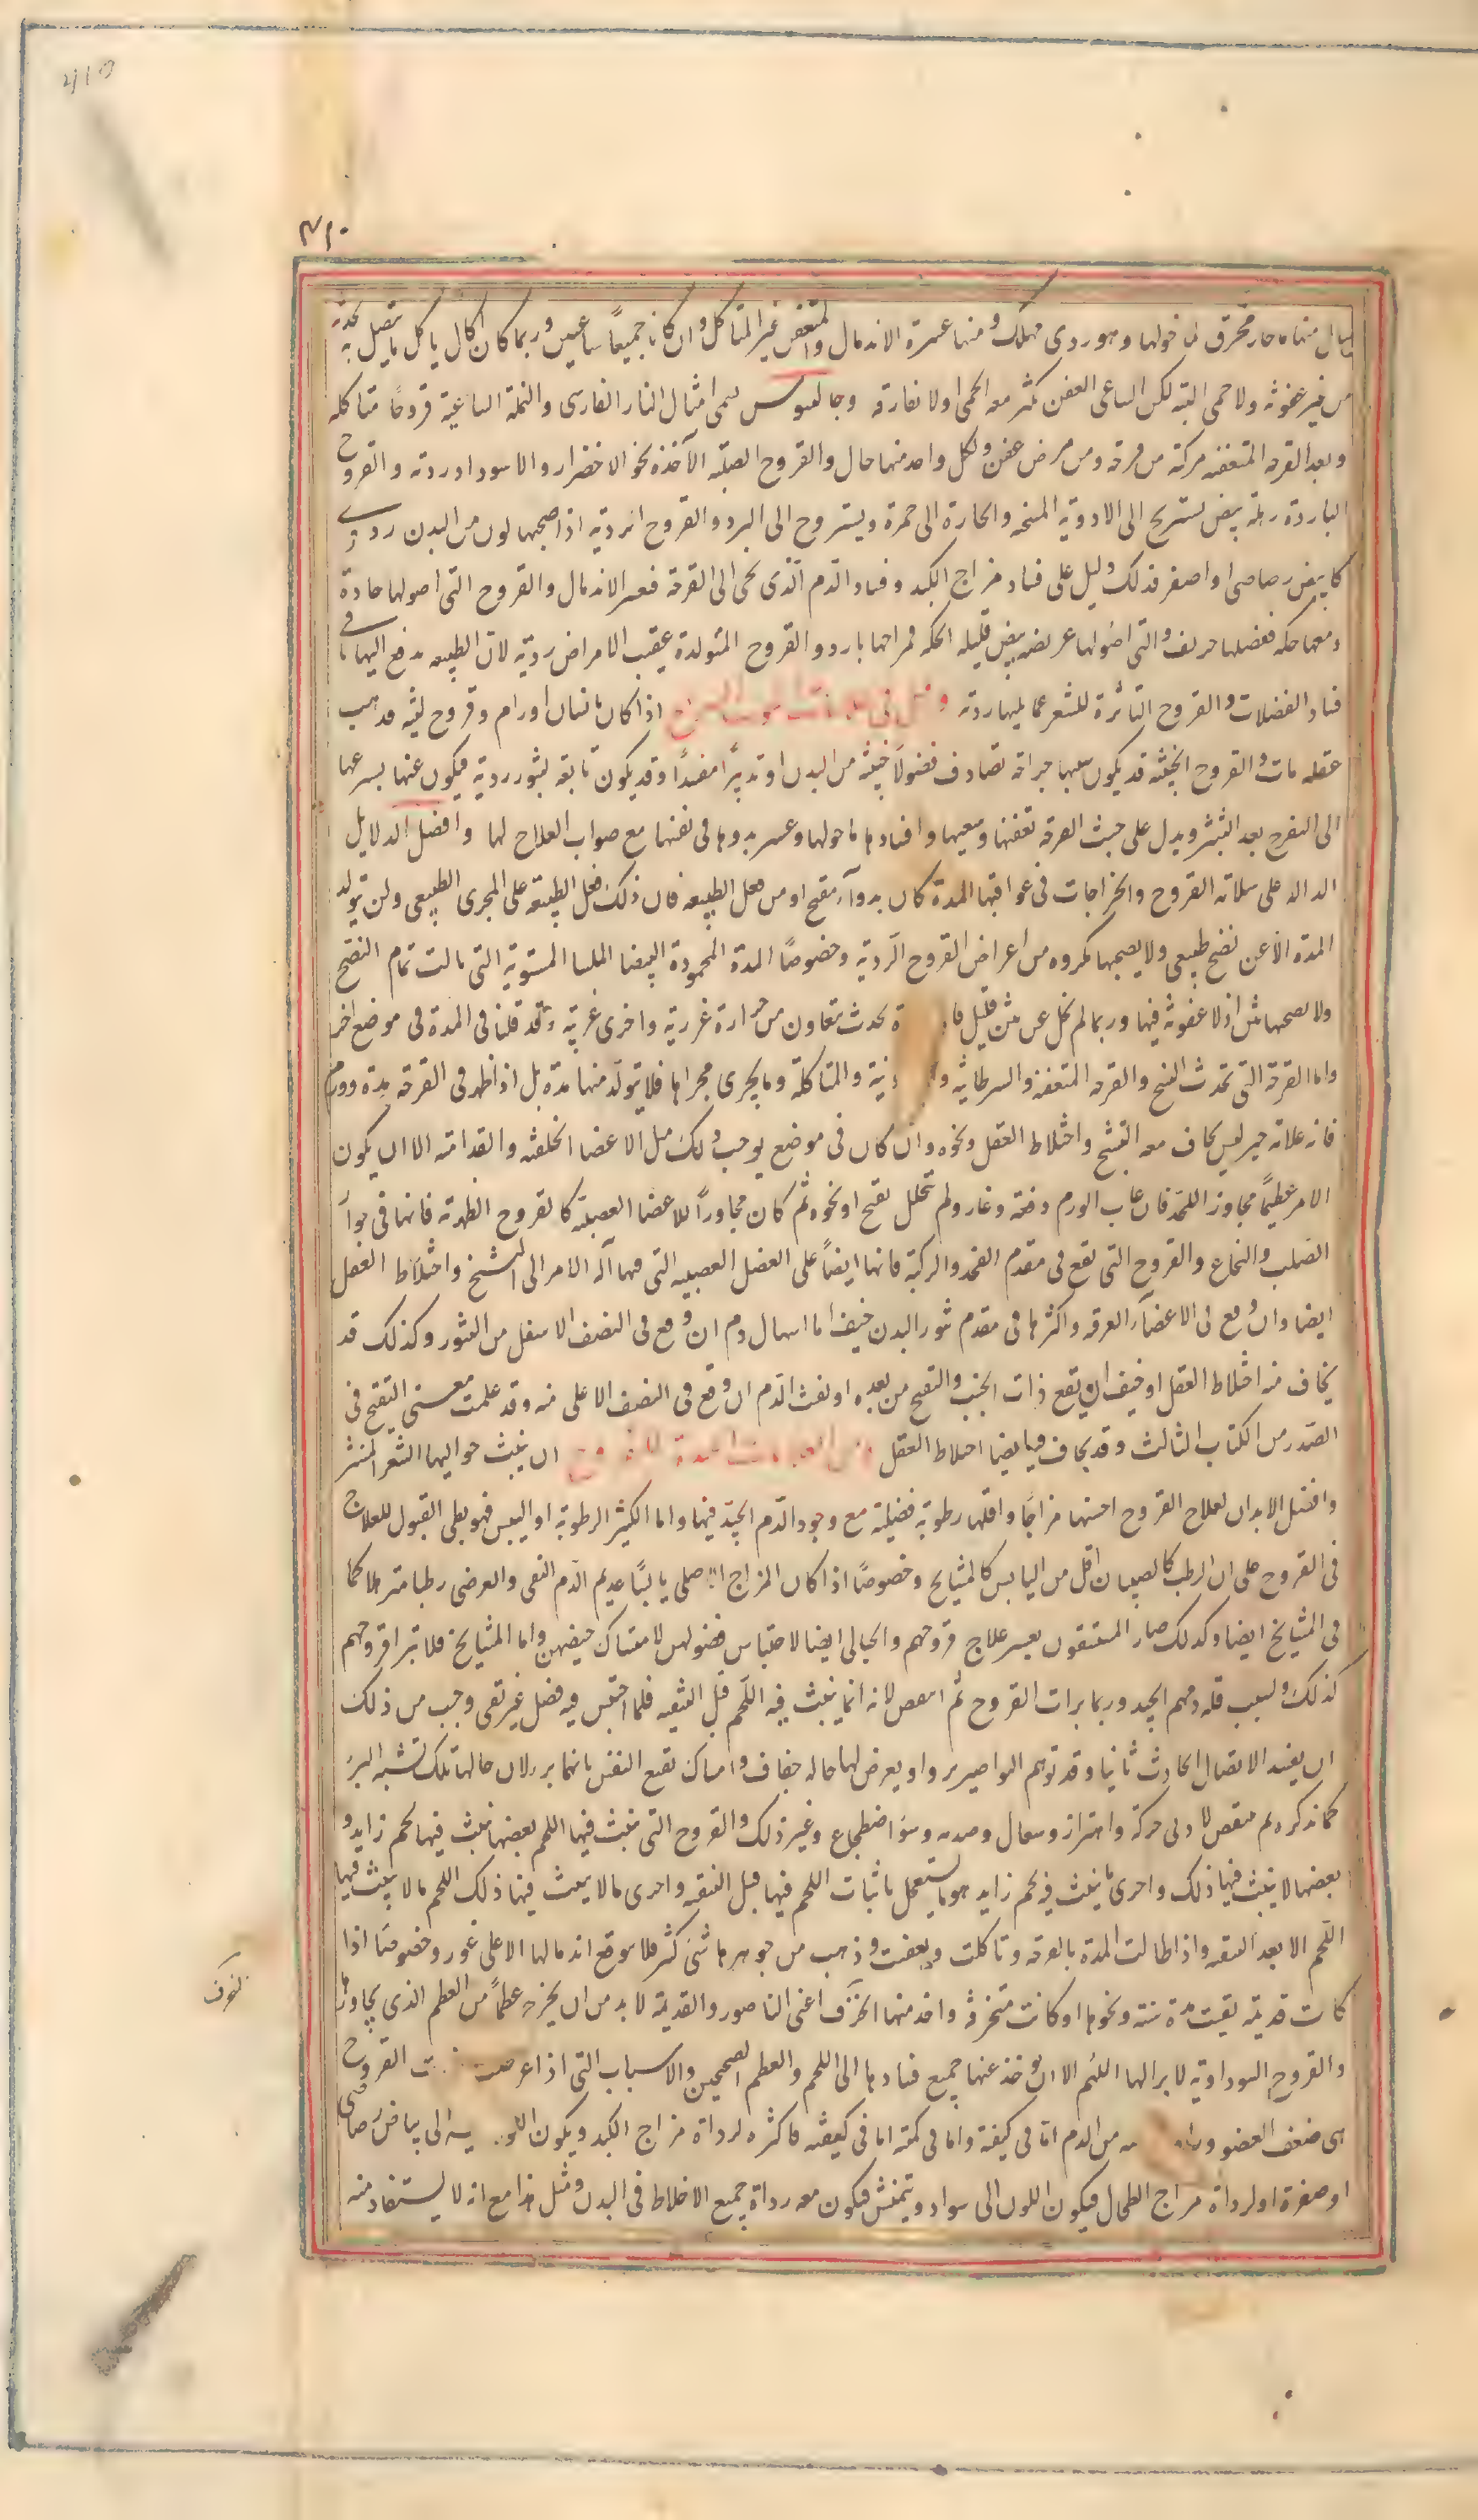 ٣١٠
سال منها ماء حار محرق لما حولها وهو ردى مهلك ومنها عسرة الاندمال والمتعفن غير المتاكل وان كانا جميعاً ساعيين وربما كان اكال ياكل ما يتصل به لحدة
من غير عفونة ولا حمى البته لكن الساعى العفن يكثر معه الحمى اولا تفارقه وجالينوس يسمى امثال النار الفارسى والنملة الساعية قروحا متاكله
ويعد القرحه المتعفنه مركبة من قرحه ومن مرض عفن ولكل واحد منها حال والقروح الصلبة الآخذة نحو الاخضرار والاسود اد ردية والقروح
الباردة رهلة بيض تستريح الى الادوية المسخنه والحارة الى حمرة ويستروح الى البرد والقروح الردية اذا صحبها لون من البدن ردى
كابيض رصاصى او اصفر فذلك دليل على فساد مزاج الكبد وفساد الدم الذى يجى الى القرحة فعسر الاندمال والقروح التى اصولها حادة
ومعها حكه ففضلها حريف والتى اصولها عريضه بيض قليله الحكه فمزاجها بارد والقروح المتولدة عقيب الامراض ردية لان الطبيعه تدفع اليها باقى
فساد الفضلات والقروح الناثرة للشعر عما يليها ردية اذا كان بانسان اورام وقروح لينه فذهب
عقله مات والقروح الخبيثه قد يكون سببها جراحة تصادف فضولاً خبيثه من البدن او تدبيراً مفسداً وقد يكون تابعة لبثور ردية فيكون عنها يسرعها
الى التقرح بعد التبثر ويدل على خبث القرحه تعفنها وسعيها وافسادها ما حولها وعسر بروها فى نفسها مع صواب العلاج لها وافضل الدلايل
الداله على سلامة القروح والخراجات فى عواقبها المدة كان بدوآء مقيح او من فعل الطبيعه فان ذلك فعل الطبيعة على المجرى الطبيعى ولن يتولد
المدة الا عن نضج طبيعى ولا يصحبها مكروه من اعراض القروح الردية وخصوصاً المدة المحمودة البيضا الملسا المستوية التى نالت تمام النضج
ولا يصحبها نتن اذ لا عفونة فيها وربما لم يخل عن نتن قليل فا ة يحدث بتعاون من حرارة غريزية واخرى غريبة وقد قلنا فى المدة فى موضع اخر
واما القرحة التى تحدث التشنج والقرحه المتعفنه والسرطانيه و والمتاكلة وما يجرى مجراها فلا يتولد منها مدة بل اذا ظهر فى القرحه مدة وورم
فانه علامة خير ليس يخاف معه التشنج واختلاط العقل ونحوه وان كان فى موضع يوجب ذلك مثل الاعضا الخلفية والقدامية الا ان يكون
الامر عظيماً مجاوز اللحمد فان غاب الورم دفعة وغار ولم يتحلل بقيح او نحوه ثم كان مجاوراً للاعضا العصبية كالقروح الظهرية فانها فى جوآر
الصلب والنخاع والقروح التى تقع فى مقدم الفخذ والركبة فانها ايضاً على العضل العصبيه التى فيها آل الامر الى التشنج واختلاط العقل
ايضا وان وقع فى الاعضآء العرقيه واكثرها فى مقدم تنور البدن خيف اما اسهال دم ان وقع فى النصف الاسفل من التنور وكذلك قد
يخاف منه اختلاط العقل او خيف ان يقع ذات الجنب والتقيح من بعده او نفث الدم ان وقع فى النصف الاعلى منه وقد علمت معنى التقيح فى
الصدر من الكتاب الثالث وقد يخاف فيها ايضا اختلاط العقل ان ينبت حواليها الشعر المنتثر
وافضل الابدان لعلاج القروح احسنها مزاجاً واقلها رطوبة فضلية مع وجود الدم الجيد فيها واما الكثير الرطوبة او اليبس فهو بطى القبول للعلاج
فى القروح على ان الرطب كالصبيان اقل من اليابس كالمشايخ وخصوصاً اذا كان المزاج الاصلى يابساً عديم الدم النقى والعرضى رطبا مترهلا كما
فى المشايخ ايضا وكذلك صار المستسقون يعسر علاج قروحهم والحبالى ايضا لاحتباس فضولهن لامتساك حيضهن واما المشايخ فلا تبرا قروحهم
كذلك ولسبب قلة دمهم الجيد وربما برات القروح ثم انتقض لانه انما ينبت فيه اللحم قبل التنقيه فلما احتبس فيه فضل غير نقى وجب من ذلك
ان يفسد الاتصال الحادث ثانيا وقد توهم النواصير برءا ويعرض لها حاله جفاف وامساك تقنع النفس بانها برء لان حالها تلك تشبه البرء
كما نذكره ثم تنتقض لادنى حركة واهتزاز وسعال وصدمه وسوء اضطجاع وغير ذلك والقروح التى ينبت فيها اللحم بعضها ينبت فيها لحم زايد و
بعضها لا ينبت فيها ذلك واحرى ما ينبت فيه لحم زايد هو ما يستعجل بانبات اللحم فيها قبل التنقيه واحرى ما لا ينبت فيها ذلك اللحم ما لا ينبت فيها
اللحم الا بعد التنقيه واذا طالت المدة بالقرحه وتاكلت وتعفنت وذهب من جوهرها شئ كثير فلا يتوقع اندمالها الا على غور وخصوصا اذا
كانت قديمة بقيت مدة سنة ونحوها او كانت متخزفة واخذ منها الخزف اعنى الناصور والقديمة لا بد من ان يخرج عظماً من العظم الذى يجاورها
والقروح السوداوية لا برا لها اللهم الا ان يوخذ عنها جميع فسادها الى اللحم والعظم الصحيحين والاسباب التى اذا عرضت القروح
هى ضعف العضو من الدم اما فى كيفيته واما فى كميته اما فى كيفيته فاكثره لرداة مزاج الكبد ويكون اللون الى بياض رصاصى
او صفرة او لرداة مزاج الطحال فيكون اللون الى سواد وتنمش فيكون معه رداة جميع الاخلاط فى البدن ومثل هذا مع انه لا يستفاد منه